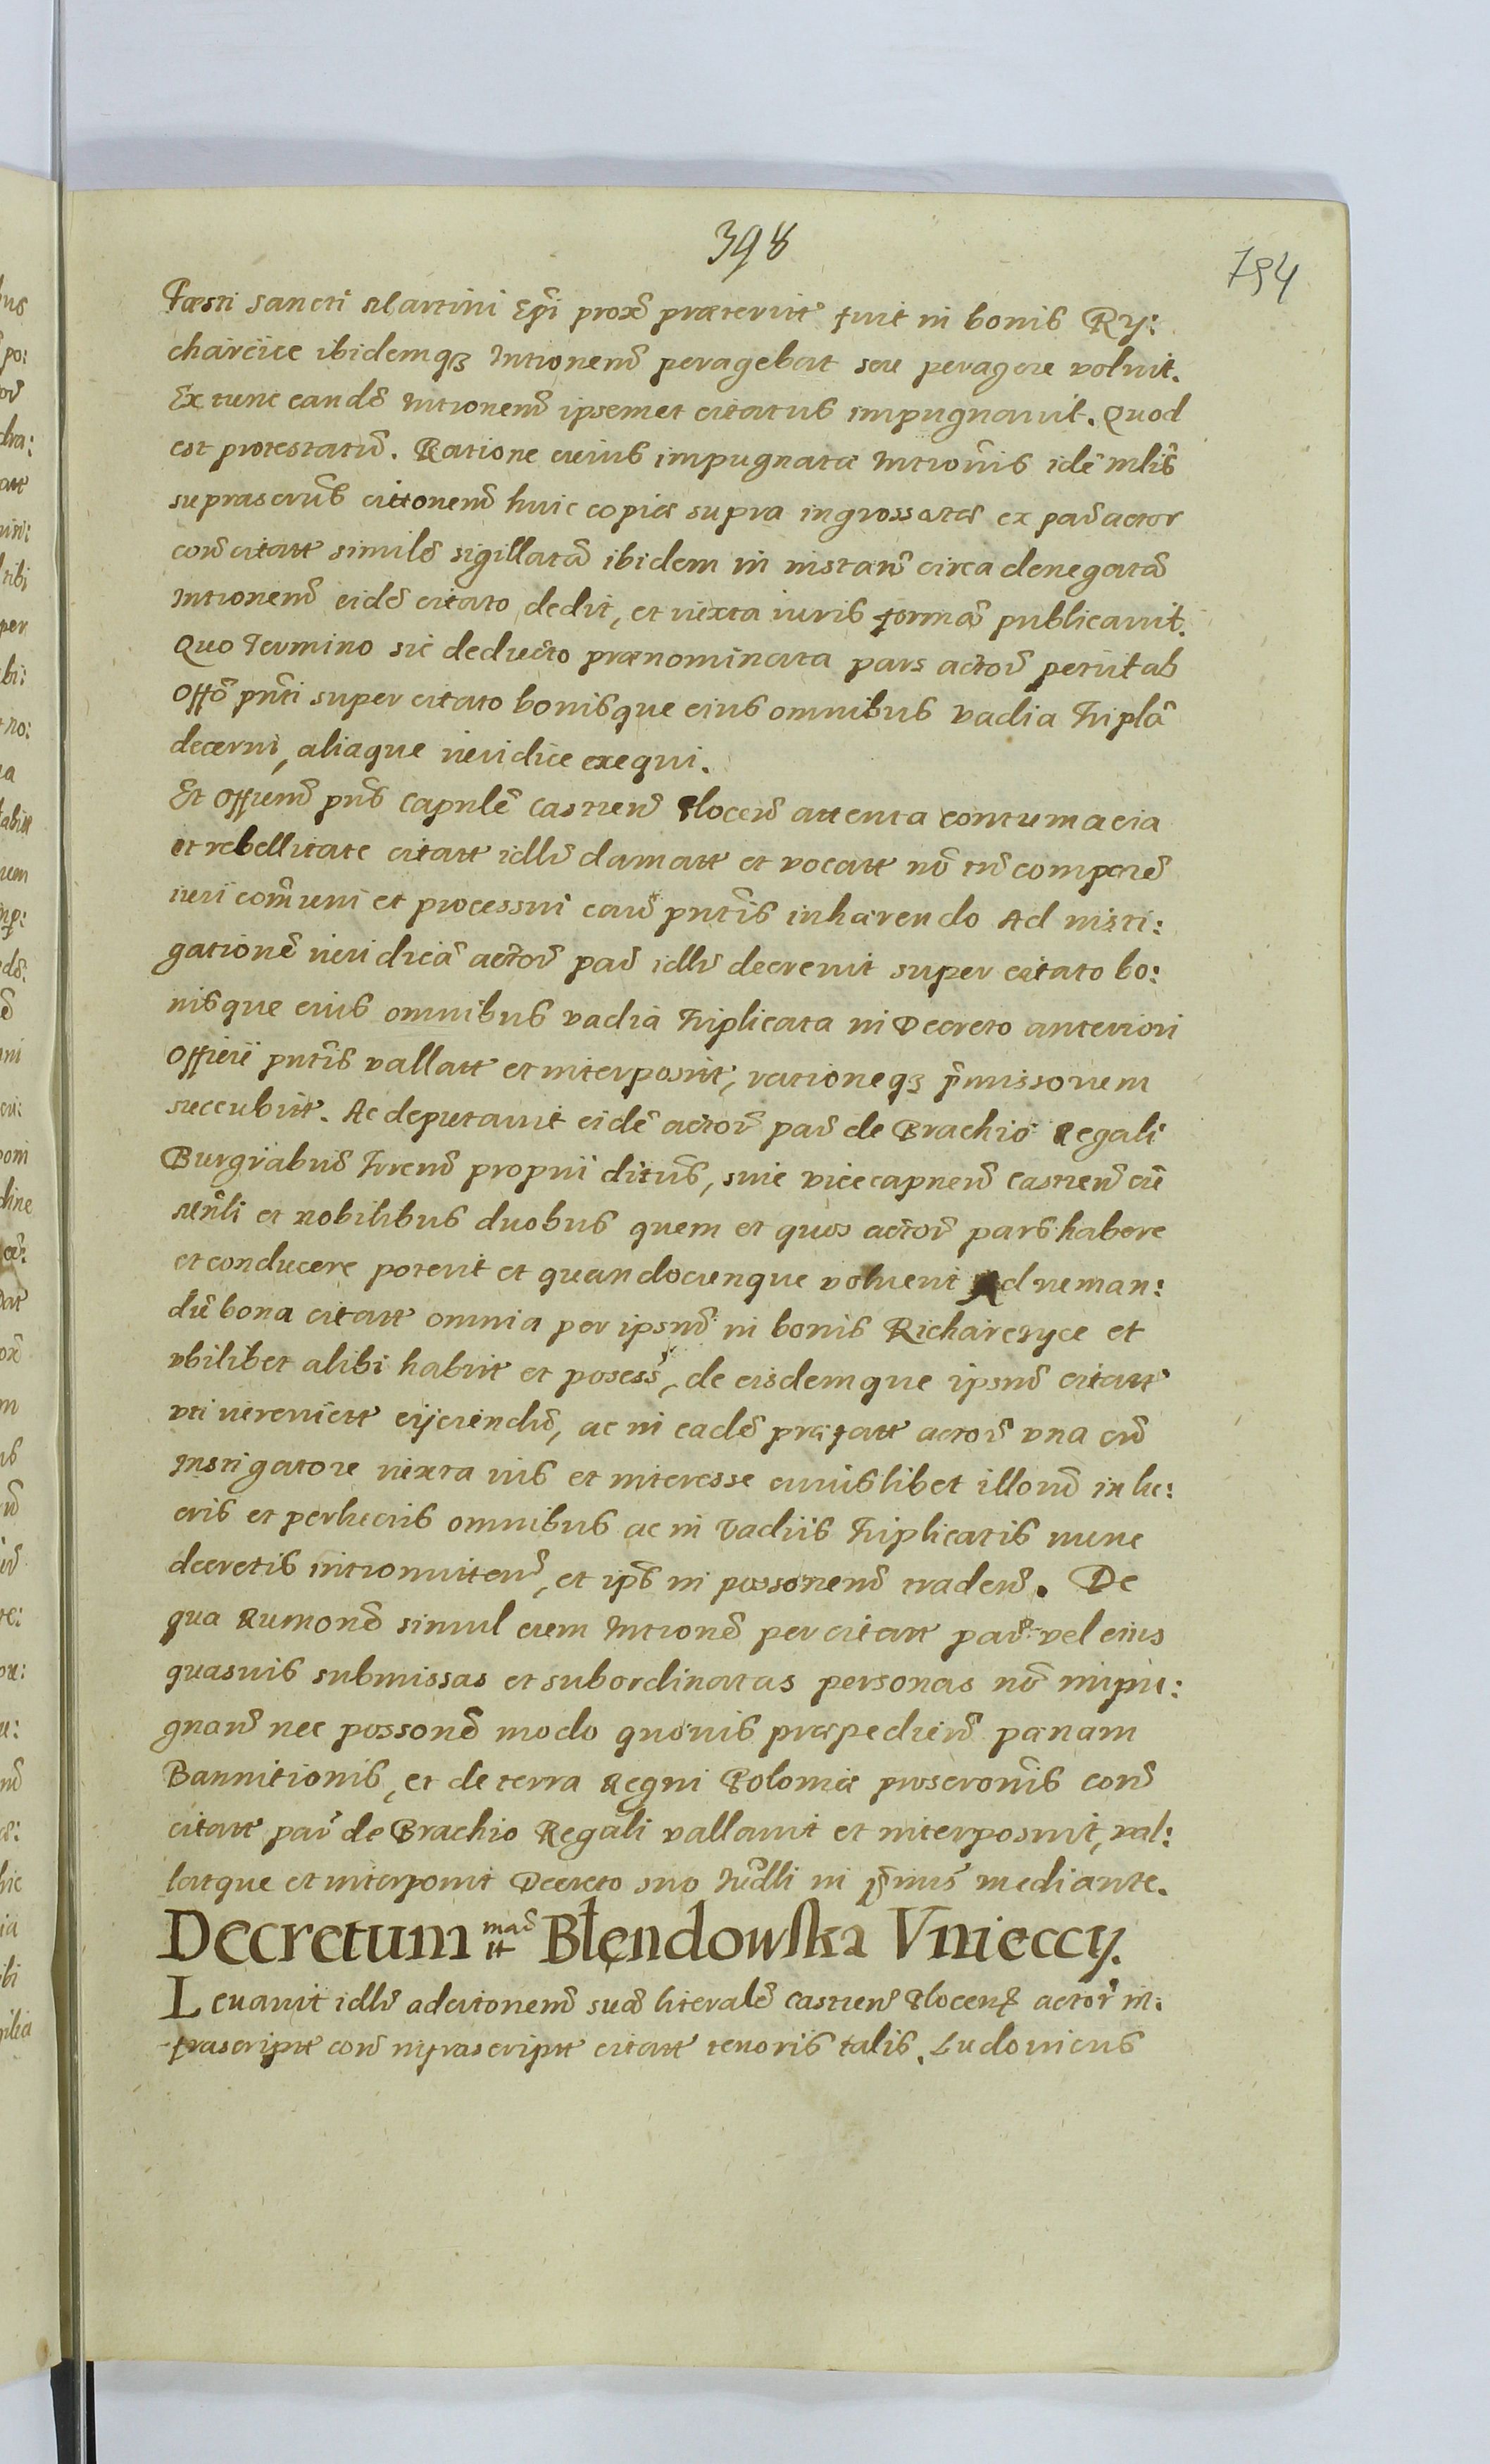 398
794
Fæsti Sancti Martini Epĩ prox̃ præteriit fuit in bonis Ry:
charcice ibidemqʒ Intionem̃ peragebat seu peragere voluit.
Ex tunc eandẽ Intionem̃ ipsemet citatus impugnavit. Quod
est protestatũ. Ratione cuius impugnatæ Intiõnis idẽ mlĩs
suprascrũs cittonem̃ huic copiæ supra ingrossatæ ex par̃ actor
con̄ citatt similẽ sigillatã ibidem in instan̄ circa denegatã
Intionem̃ eidẽ citato dedit, et iuxta iuris formã publicavit.
Quo Termino sic deducto prænominata pars actor̃ petiit ab
Offõ pñti super citato bonisque eius omnibus vadia Triplã
decerni, aliaque iuridice exequi.
Et Offium̃ pñs Capnlẽ Castren̄ Plocen̄ attenta contumacia
et rebellitate citatt idlr̃ clamatt et vocatt nõ tñ comparẽ
iuri com̃uni et processui caus̃ pñtis inhærendo Ad insti:
gationẽ iuridicã actor̃ par̃ idlr̃ decrevit super citato bo:
nisque eius omnibus vadia Triplicata in Decreto anteriori
Officii pñtis vallatt et interposuit, rationeqʒ p̃missorum
succubuit. Ac deputavit eidẽ actor̃ par̃ de Brachio Regali
Burgrabium̃ Terren̄ proprii districtus, sive vicecapneum̃ Castren̄ cũ
Mñli et nobilibus duobus quem et quos actor̃ pars habere
et conducere poterit et quandocunque voluerit Ad ruman:
dũ bona citatt omnia per ipsum̃ in bonis Richarczyce et
vbilibet alibi habuit et posess̃, de eisdemque ipsum̃ citatt
vti irrevẽtt eijciendũ, ac in eadẽ præfatt actor̃ vna cũ
Instigatore iuxta ius et interesse cuiuslibet illorum̃ in lu:
cris et perlucris omnibus ac in Vadiis Triplicatis nunc
decretis intromitten̄, et ip̃s in possonem̃ traden̄. De
qua Rumonẽ simul cum Intionẽ per citatt par̃ vel eius
quasvis submissas et subordinatas personas nõ impu:
gnan̄ nec possonẽ modo quovis præpedien̄ pænam
Bannitionis, et de terra Regni Poloniæ proscrõnis con̄
citatt par̃ de Brachio Regali vallavit et interposuit, val:
latque et interponit Decreto suo Iudlli in p̃miss̃ mediante.
Decretum int mac̃ Błendowska Vnieccy.
Levavit idlr̃ ad citonem̃ suã literalẽ castren̄ Plocen̄ actor̃ in:
frascriptt con̄ infrascriptt citatt tenoris talis. Ludovicus